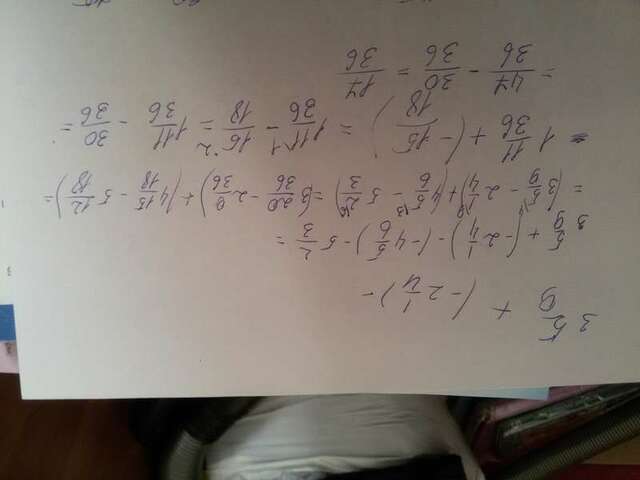 3 5/9 + (-2 1/4) -
3 5/9 + (-2 1/4) - (-4 5/6) - 5 2/3 =
= (3 5/9 - 2 1/4) + (4 5/6 - 5 2/3) = (3 20/36 - 2 9/36) + (4 15/18 - 5 12/18) =
= 1 11/36 + (- 15/18) = 1 11/36 - 15/18 = 1 11/36 - 30/36 =
= 47/36 - 30/36 = 17/36